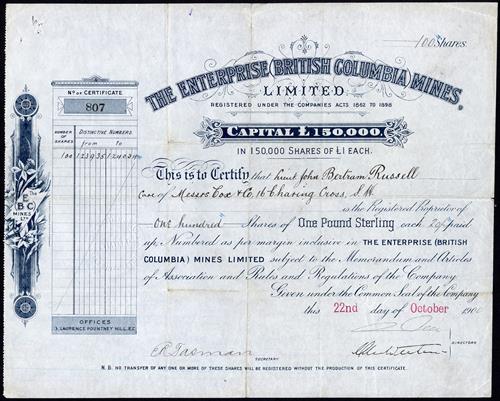 100 Shares
THE ENTERPRISE (BRITISH COLUMBIA) MINES,
LIMITED.
REGISTERED UNDER THE COMPANIES ACTS 1862 TO 1898
CAPITAL £150,000,
IN 150,000 SHARES OF £1 EACH.
No OF CERTIFICATE
807
NUMBER OF SHARES
DISTINCTIVE NUMBERS.
from to
100
THE
E
BC
MINES
LTD
OFFICES
3, LAURENCE POUNTNEY HILL, E.C.
This is to Certify that Lieut John Bertram Russell
Care of Messrs Cox & Co, 16 Charing Cross, S.W.
is the Registered Proprietor of
One hundred Shares of One Pound Sterling each paid
up, Numbered as per margin inclusive in THE ENTERPRISE (BRITISH
COLUMBIA) MINES LIMITED subject to the Memorandum and Articles
of Association and Rules and Regulations of the Company.
Given under the Common Seal of the Company
this 22nd day of October
DIRECTORS
E R Tasman
SECRETARY
N.B. NO TRANSFER OF ANY ONE OR MORE OF THESE SHARES WILL BE REGISTERED WITHOUT THE PRODUCTION OF THIS CERTIFICATE.